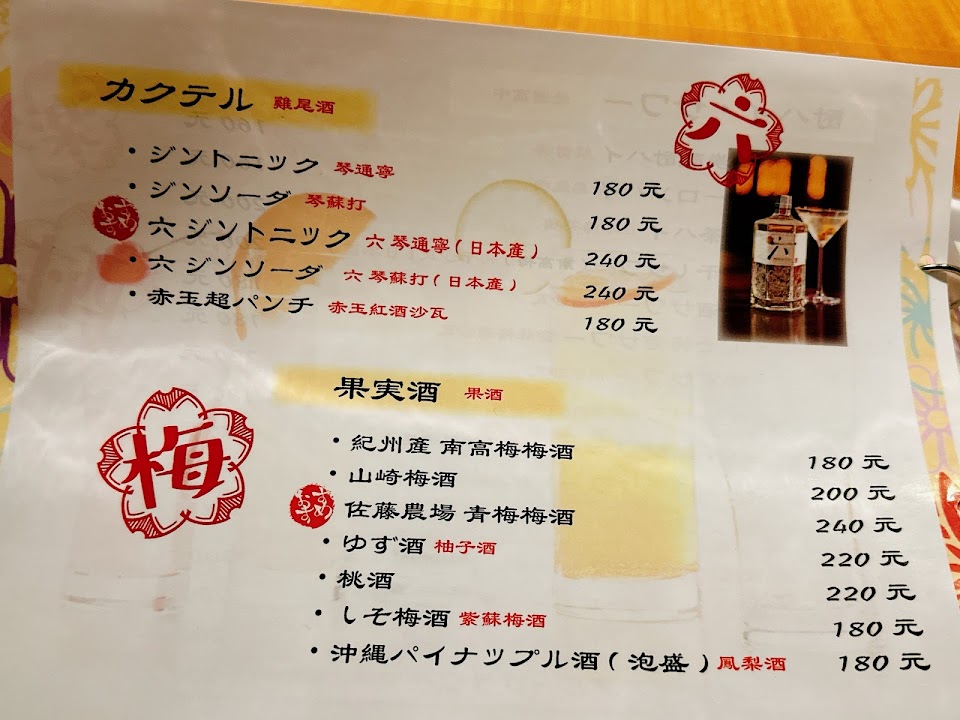 カクテル 雞尾酒
・ジントニック 琴通寧 180 元
・ジンソーダ 琴蘇打 180 元
おすすめ 六 ジントニック 六 琴通寧(日本產) 240 元
・六 ジンソーダ 六 琴蘇打(日本產) 240 元
・赤玉超パンチ 赤玉紅酒沙瓦 180 元
六
六
果実酒 果酒
梅
・紀州産 南高梅梅酒 180 元
・山崎梅酒 200 元
おすすめ 佐藤農場 青梅梅酒 240 元
・ゆず酒 柚子酒 220 元
・桃酒 220 元
・しそ梅酒 紫蘇梅酒 180 元
・沖縄パイナップル酒(泡盛)鳳梨酒 180 元